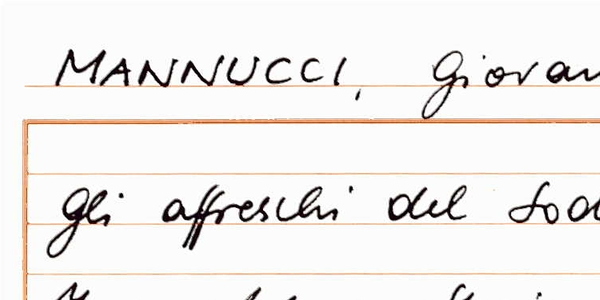 MANNUCCI, Giovan
Gli affreschi del Sod